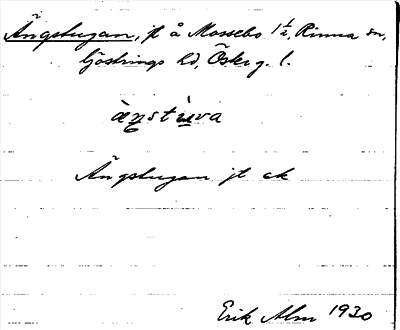 Ängstugan, jt å Mossebo 1 1/2, Rinna sn,
Göstrings hd, Österg. l.
àŋstùva
Ängstugan jt ek
Erik Alm 1930